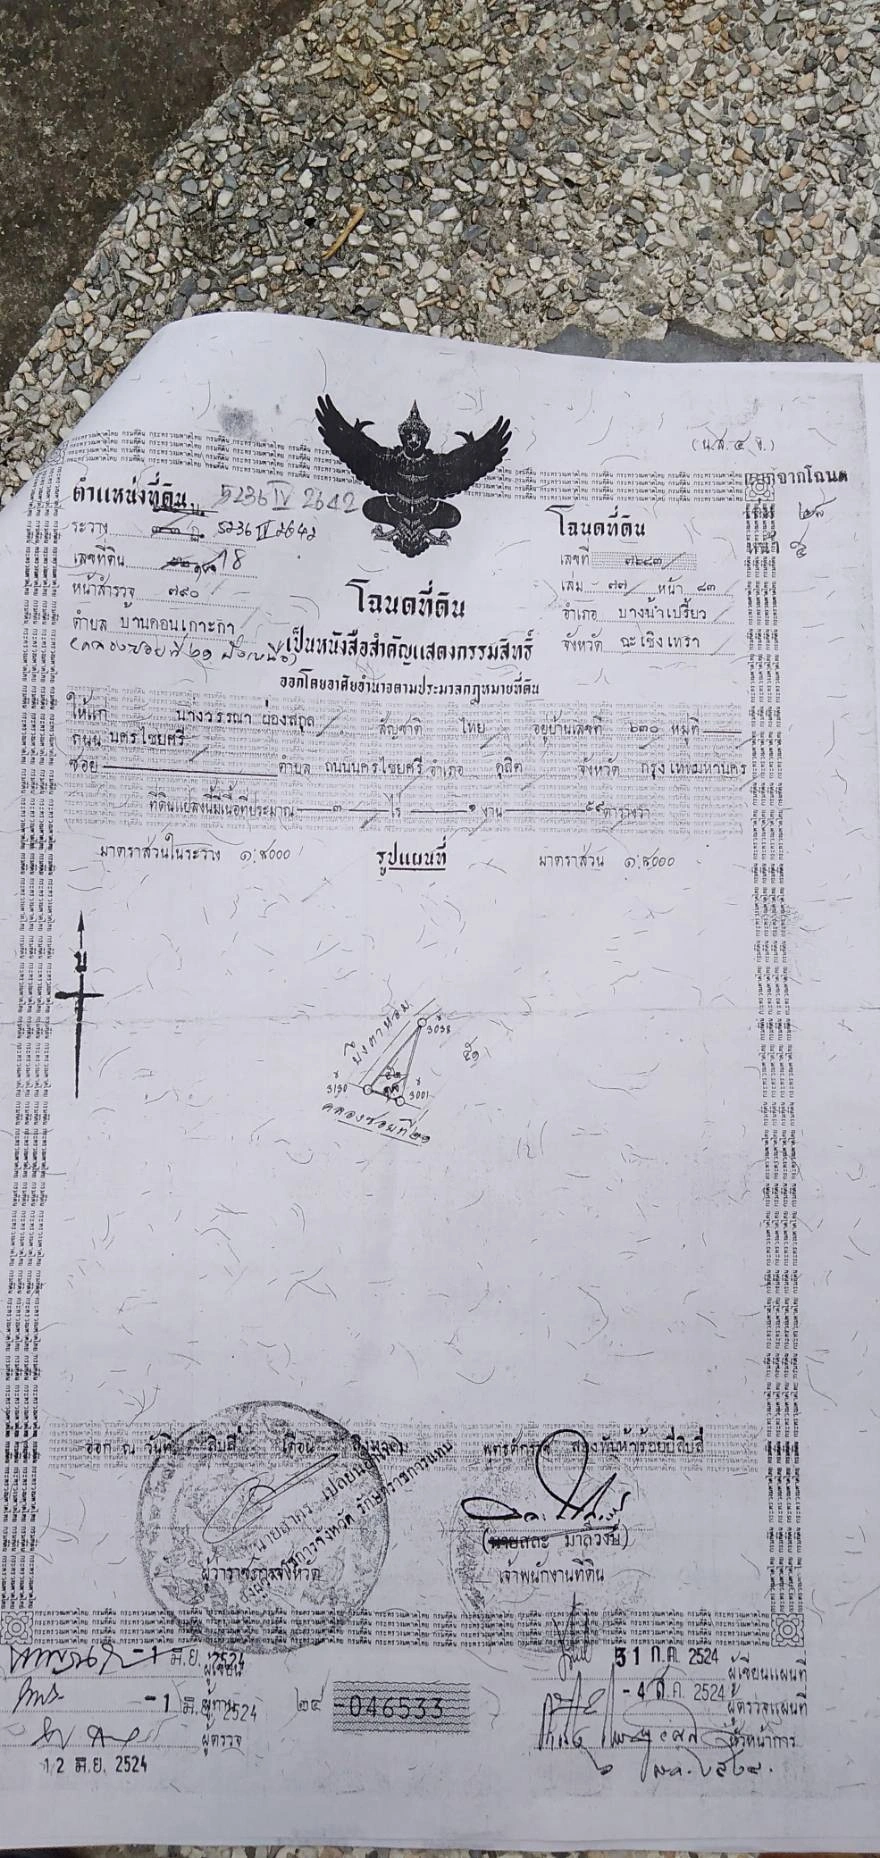 (น.ส. ๔ จ.)
ตำแหน่งที่ดิน 5236 IV 2642
ระวาง 5236 IV 2642
เลขที่ดิน 18
หน้าสำรวจ ๗๙๐
ตำบล บ้านดอนเกาะกา
(คลองซอยที่ ๒๑ ฝั่งเหนือ)
โฉนดที่ดิน
เป็นหนังสือสำคัญแสดงกรรมสิทธิ์
ออกโดยอาศัยอำนาจตามประมวลกฎหมายที่ดิน
โฉนดที่ดิน
เลขที่ ๗๖๘๓
เล่ม ๗๗ หน้า ๘๓
อำเภอ บางน้ำเปรี้ยว
จังหวัด ฉะเชิงเทรา
จากโฉนด
ให้แก่ นางวรรณา ผ่องสกุล สัญชาติ ไทย อยู่บ้านเลขที่ ๖๓๐ หมู่ที่
ถนน นครไชยศรี
ซอย ตำบล ถนนนครไชยศรี อำเภอ ดุสิต จังหวัด กรุงเทพมหานคร
ที่ดินแปลงนี้มีเนื้อที่ประมาณ ๓ ไร่ ๑ งาน ๕๙ ตารางวา
มาตราส่วนในระวาง ๑:๔๐๐๐ รูปแผนที่ มาตราส่วน ๑:๔๐๐๐
น
บึงตาหอม
3038
๕๑
3130
3001
คลองซอยที่ ๒๑
ออก ณ วันที่ สิบสี่ เดือน สิงหาคม พุทธศักราช สองพันห้าร้อยยี่สิบสี่
รักษาราชการแทน
ผู้ว่าราชการจังหวัด
(นายสละ มาลีวงษ์)
เจ้าพนักงานที่ดิน
-1 มิ.ย. 2524 ผู้เขียน
-1 มิ.ย. 2524 ผู้ทาน
ผู้ตรวจ
12 มิ.ย. 2524
๒๔ -046533
31 ก.ค. 2524 ผู้เขียนแผนที่
-4 ส.ค. 2524 ผู้ตรวจแผนที่
หัวหน้าการ
๖ ส.ค. ๒๕๒๔